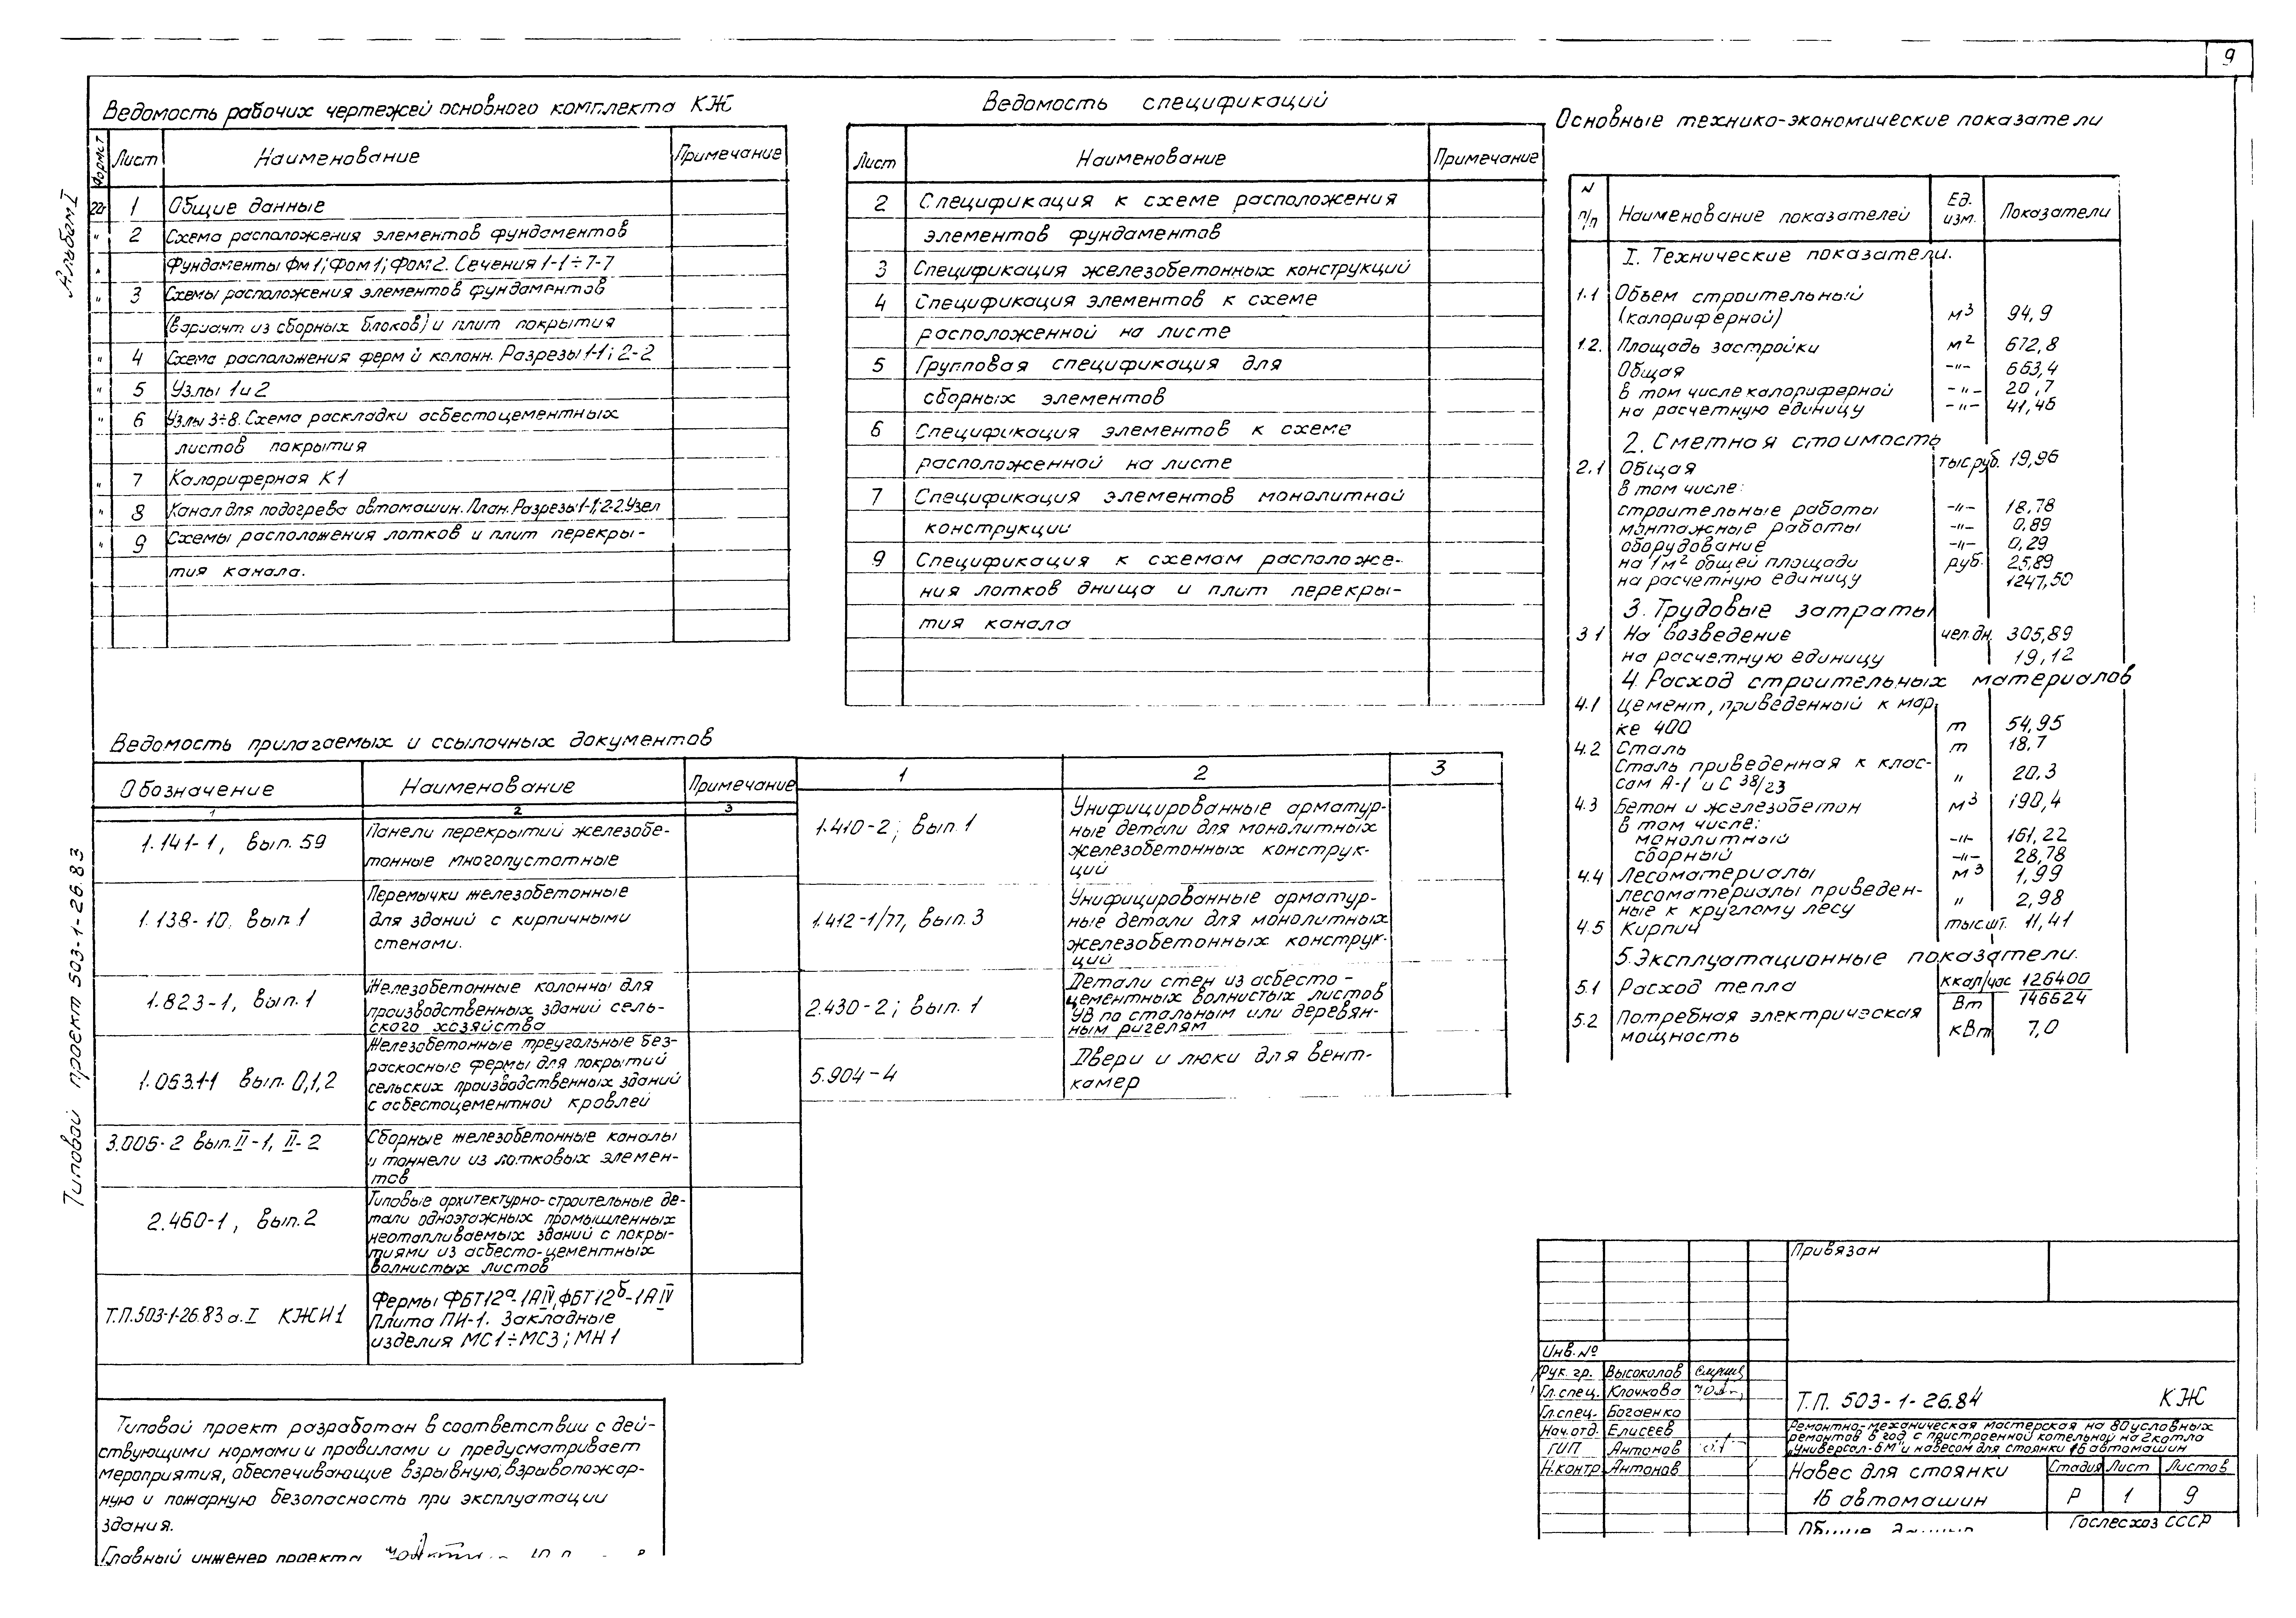 9
Альбом I
Типовой проект 503-1-26.83
Ведомость рабочих чертежей основного комплекта КЖ
Формат Лист Наименование Примечание
22г 1 Общие данные
" 2 Схема расположения элементов фундаментов
" Фундаменты Фм1; Фом1; Фом2. Сечения 1-1÷7-7
" 3 Схемы расположения элементов фундаментов
(вариант из сборных блоков) и плит покрытия
" 4 Схема расположения ферм и колонн. Разрезы 1-1; 2-2
" 5 Узлы 1 и 2
" 6 Узлы 3÷8. Схема раскладки асбестоцементных
листов покрытия
" 7 Калориферная К1
" 8 Канал для подогрева автомашин. План. Разрезы 1-1; 2-2. Узел
" 9 Схемы расположения лотков и плит перекры-
тия канала.
Ведомость спецификаций
Лист Наименование Примечание
2 Спецификация к схеме расположения
элементов фундаментов
3 Спецификация железобетонных конструкций
4 Спецификация элементов к схеме
расположенной на листе
5 Групповая спецификация для
сборных элементов
6 Спецификация элементов к схеме
расположенной на листе
7 Спецификация элементов монолитной
конструкции
9 Спецификация к схемам расположе-
ния лотков днища и плит перекры-
тия канала
Основные технико-экономические показатели
N п/п Наименование показателей Ед. изм. Показатели
I. Технические показатели.
1.1 Объем строительный
(калориферной) м³ 94,9
1.2. Площадь застройки м² 672,8
Общая -"- 663,4
в том числе калориферной -"- 20,7
на расчетную единицу -"- 41,46
2. Сметная стоимость
2.1 Общая тыс.руб. 19,96
в том числе:
строительные работы -"- 18,78
монтажные работы -"- 0,89
оборудование -"- 0,29
на 1м² общей площади руб. 25,89
на расчетную единицу 1247,50
3. Трудовые затраты
3.1 На возведение чел.дн. 305,89
на расчетную единицу 19,12
4. Расход строительных материалов
4.1 Цемент, приведенный к мар-
ке 400 т 54,95
4.2 Сталь т 18,7
Сталь приведенная к клас-
сам А-1 и С 38/23 " 20,3
4.3 Бетон и железобетон м³ 190,4
в том числе:
монолитный -"- 161,22
сборный -"- 28,78
4.4 Лесоматериалы м³ 1,99
лесоматериалы приведен-
ные к круглому лесу " 2,98
4.5 Кирпич тыс.шт. 11,41
5. Эксплуатационные показатели.
5.1 Расход тепла ккал/час 126400
Вт 146624
5.2 Потребная электрическая
мощность кВт 7,0
Ведомость прилагаемых и ссылочных документов
Обозначение Наименование Примечание
1 2 3
1.141-1, вып. 59 Панели перекрытий железобе-
тонные многопустотные
1.138-10, вып.1 Перемычки железобетонные
для зданий с кирпичными
стенами.
1.823-1, вып.1 Железобетонные колонны для
производственных зданий сель-
ского хозяйства
1.063.1-1 вып. 0,1,2 Железобетонные треугольные без-
раскосные фермы для покрытий
сельских производственных зданий
с асбестоцементной кровлей
3.006-2 вып. II-1, II-2 Сборные железобетонные каналы
и тоннели из лотковых элемен-
тов
2.460-1, вып.2 Типовые архитектурно-строительные де-
тали одноэтажных промышленных
неотапливаемых зданий с покры-
тиями из асбесто-цементных
волнистых листов
Т.П.503-1-26.83 а.I КЖИ1 Фермы ФБТ12а-1АIV, ФБТ12б-1АIV
Плита ПИ-1. Закладные
изделия МС1÷МС3; МН1
1 2 3
1.410-2; вып.1 Унифицированные арматур-
ные детали для монолитных
железобетонных конструк-
ций
1.412-1/77, вып.3 Унифицированные арматур-
ные детали для монолитных
железобетонных конструк-
ций
2.430-2; вып. 1 Детали стен из асбесто-
цементных волнистых листов
УВ по стальным или деревян-
ным ригелям
5.904-4 Двери и люки для вент-
камер
Типовой проект разработан в соответствии с дей-
ствующими нормами и правилами и предусматривает
мероприятия, обеспечивающие взрывную, взрывопожар-
ную и пожарную безопасность при эксплуатации
здания.
Главный инженер проекта
Привязан
Инв. №
Рук. гр. Высоколов
Гл.спец. Клочкова
Гл.спец. Богаенко
Нач.отд. Елисеев
ГИП Антонов
Н.контр. Антонов
Т.П. 503-1-26.84 КЖ
Ремонтно-механическая мастерская на 80 условных
ремонтов в год с пристроенной котельной на 2 котла
„Универсал-6М" и навесом для стоянки 16 автомашин
Навес для стоянки
16 автомашин
Стадия Лист Листов
Р 1 9
Общие данные
Гослесхоз СССР